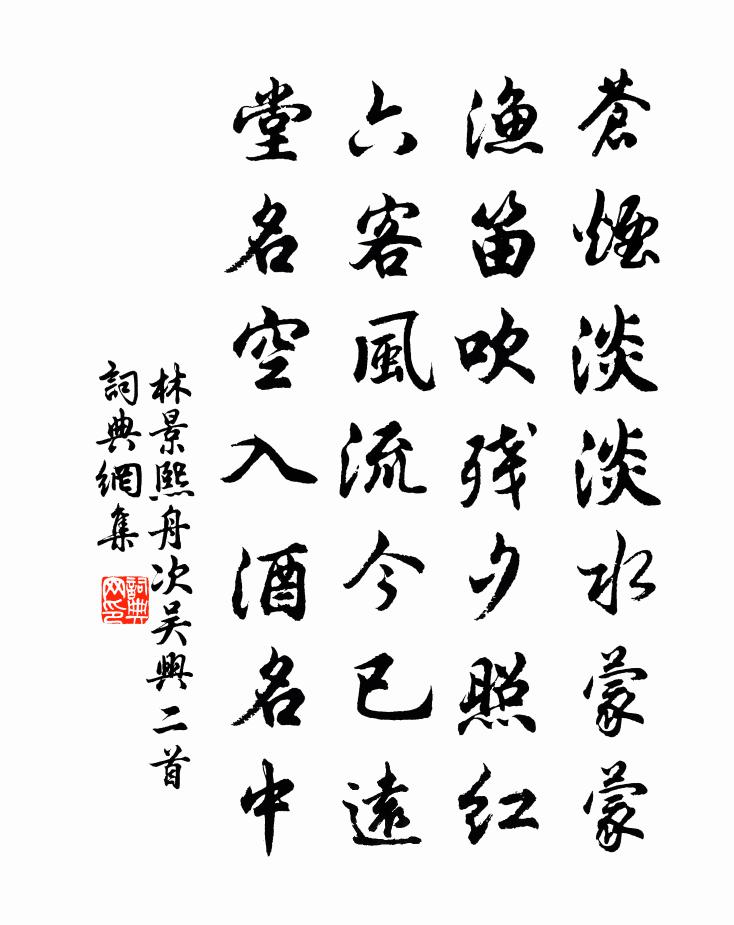 蒼煙淡淡水蒙蒙
漁笛吹残夕照红
六客風流今已遠
堂名空入酒名中
林景熙舟次吴興二首
詞典網集
詞典
网印